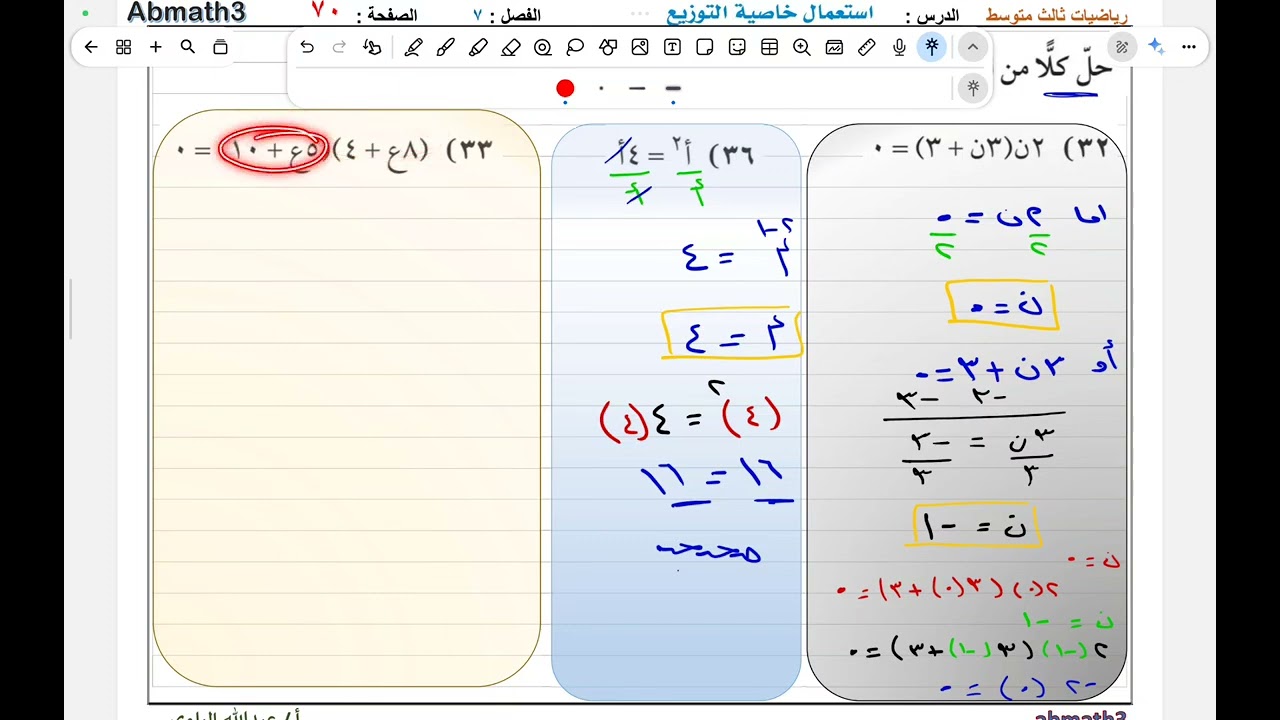 رياضيات ثالث متوسط الدرس : استعمال خاصية التوزيع الفصل : ٧ الصفحة : ٧٠ Abmath3
حلّ كلًّا من
٣٢) ٢ن(٣ن + ٣) = ٠
اما ٢ن = ٠
٢ ٢
ن = ٠
أو ٣ن + ٣ = ٠
-٣ -٣
٣ن = -٣
٣ ٣
ن = -١
ن = ٠
٢(٠)(٣(٠) + ٣) = ٠
ن = -١
٢(-١)(٣(-١) + ٣) = ٠
-٢ (٠) = ٠
٣٦) أ٢ = ٤أ
أ أ
أ٢-١ = ٤
أ = ٤
(٤)٢ = ٤(٤)
١٦ = ١٦
صحيحه
٣٣) (٨ع + ٤)(٥ع + ١٠) = ٠
abmath3